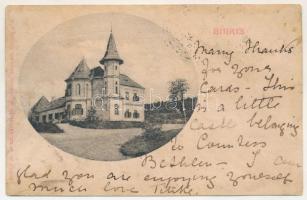 BIIRKÖS
Many Thanks
for your
Cards - This
is a little
Castle belonging
to Countess
Bethlen - I am
glad you are enjoying yourself
much love